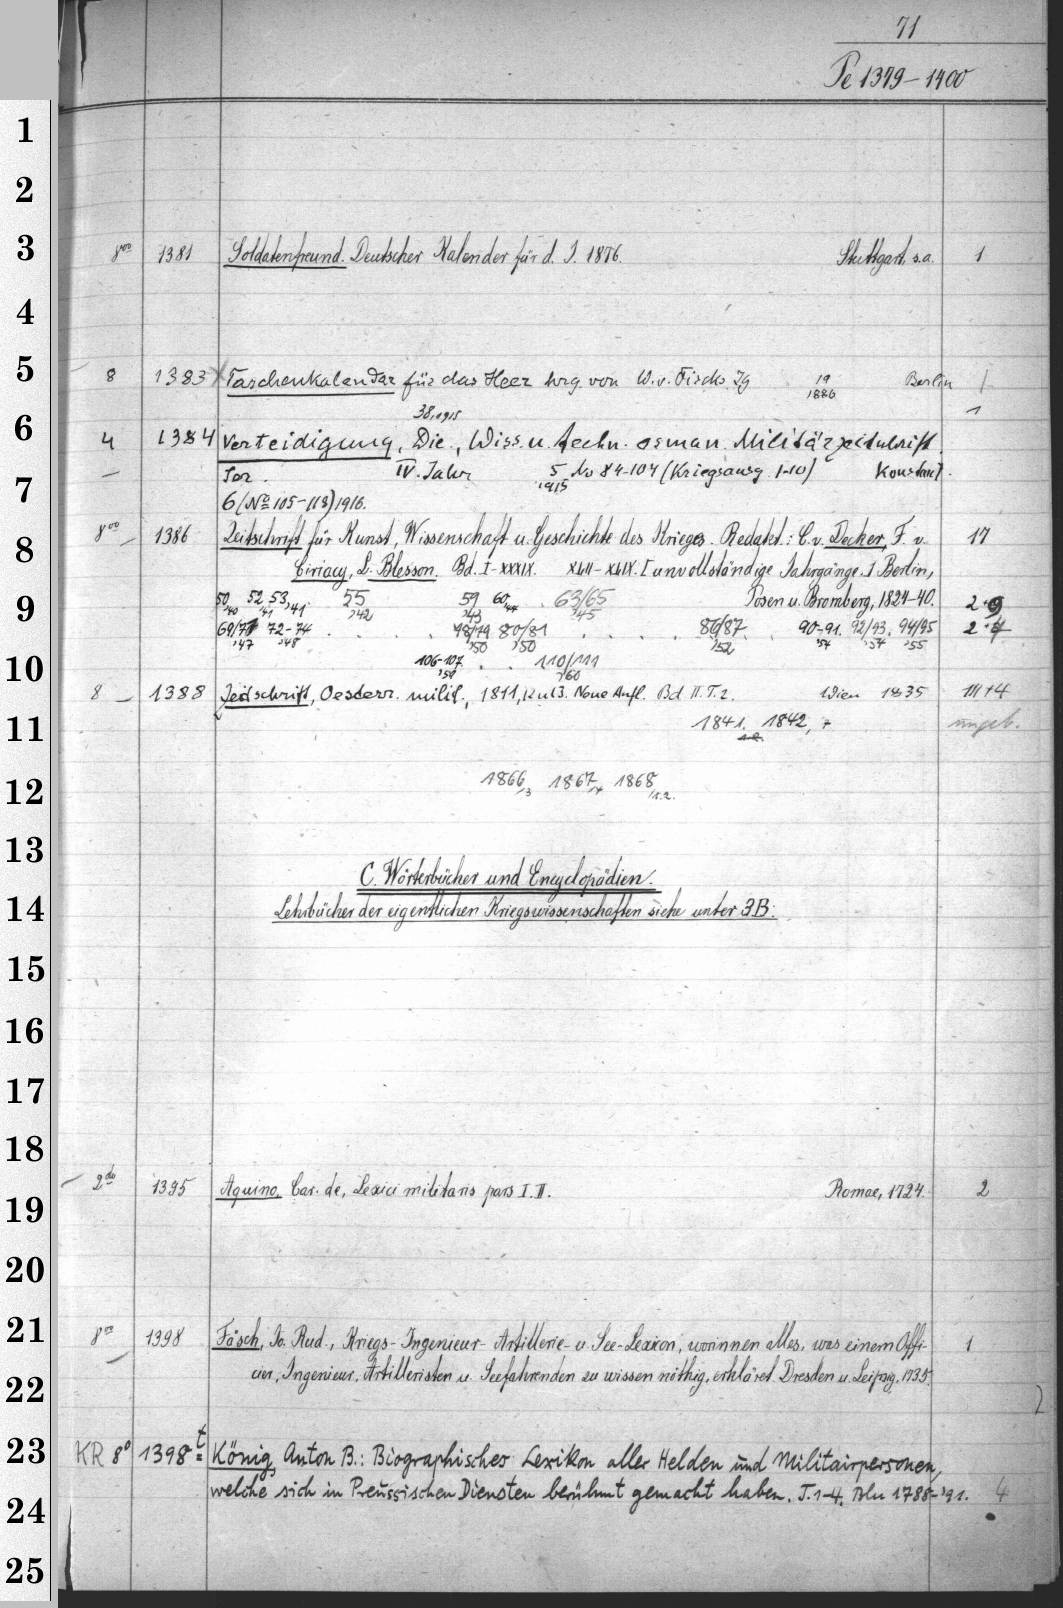 71
Pe 1379-1400
1
2
3 8vo 1381 Soldatenfreund. Deutscher Kalender für d. J. 1876. Stuttgart, s.a. 1
4
5 8 1383 Taschenkalendar für das Heer hrg. von W. v. Fircks. Jg 19 1886 Berlin 1
38,1915 1
6 4 1384 Verteidigung, Die, Wiss. u. techn. osman. Militärzeitschrift.
IV. Jahr 5 1915 No 84-104 (Kriegsausg. 1-10) Konstant.
7 6 (No 105-113) 1916.
8 8vo 1386 Zeitschrift für Kunst, Wissenschaft u. Geschichte des Krieges. Redakt.: C. v. Decker, F. v. 17
Ciriacy, L. Blesson. Bd. I-XXXIX. XLII-XLIX. [unvollständige Jahrgänge.] Berlin,
9 50,'40 52,'41 53,'41 55,'42 59,'43 60,'44 63/65,'45 Posen u. Bromberg, 1824-40. 2+9
69/71,'47 72-74,'48 . . . 78/79,'50 80/81,'50 . . . . 86/87,'52 . . 90-91.'54 92/93.'54 94/95.'55 2+4
10 106-107,'59 . . 110/111,'60
8 1388 Zeitschrift, Oesterr. milit., 1811, 12 u 13. Neue Aufl. Bd II. T. 2. Wien 1835 III+4
11 1841. 1842, ungeb.
12 1866,3 1867,4 1868,1.2.
13
C. Wörterbücher und Encyclopädien.
14 Lehrbücher der eigentlichen Kriegswissenschaften siehe unter 3B.
15
16
17
18
2do 1395 Aquino, Car. de, Lexici militaris pars I. II. Romae, 1724. 2
19
20
21 8vo 1398 Fäsch, Jo. Rud., Kriegs- Ingenieur- Artillerie- u. See-Lexicon, worinnen alles, was einem Offi- 1
22 cier, Ingenieur, Artilleristen u. Seefahrenden zu wissen nöthig, erkläret. Dresden u. Leipzig, 1735.
23 KR 8° 1398t König, Anton B.: Biographisches Lexikon aller Helden und Militairpersonen,
24 welche sich in Preussischen Diensten berühmt gemacht haben. T. 1-4. Bln 1788-'91. 4
25